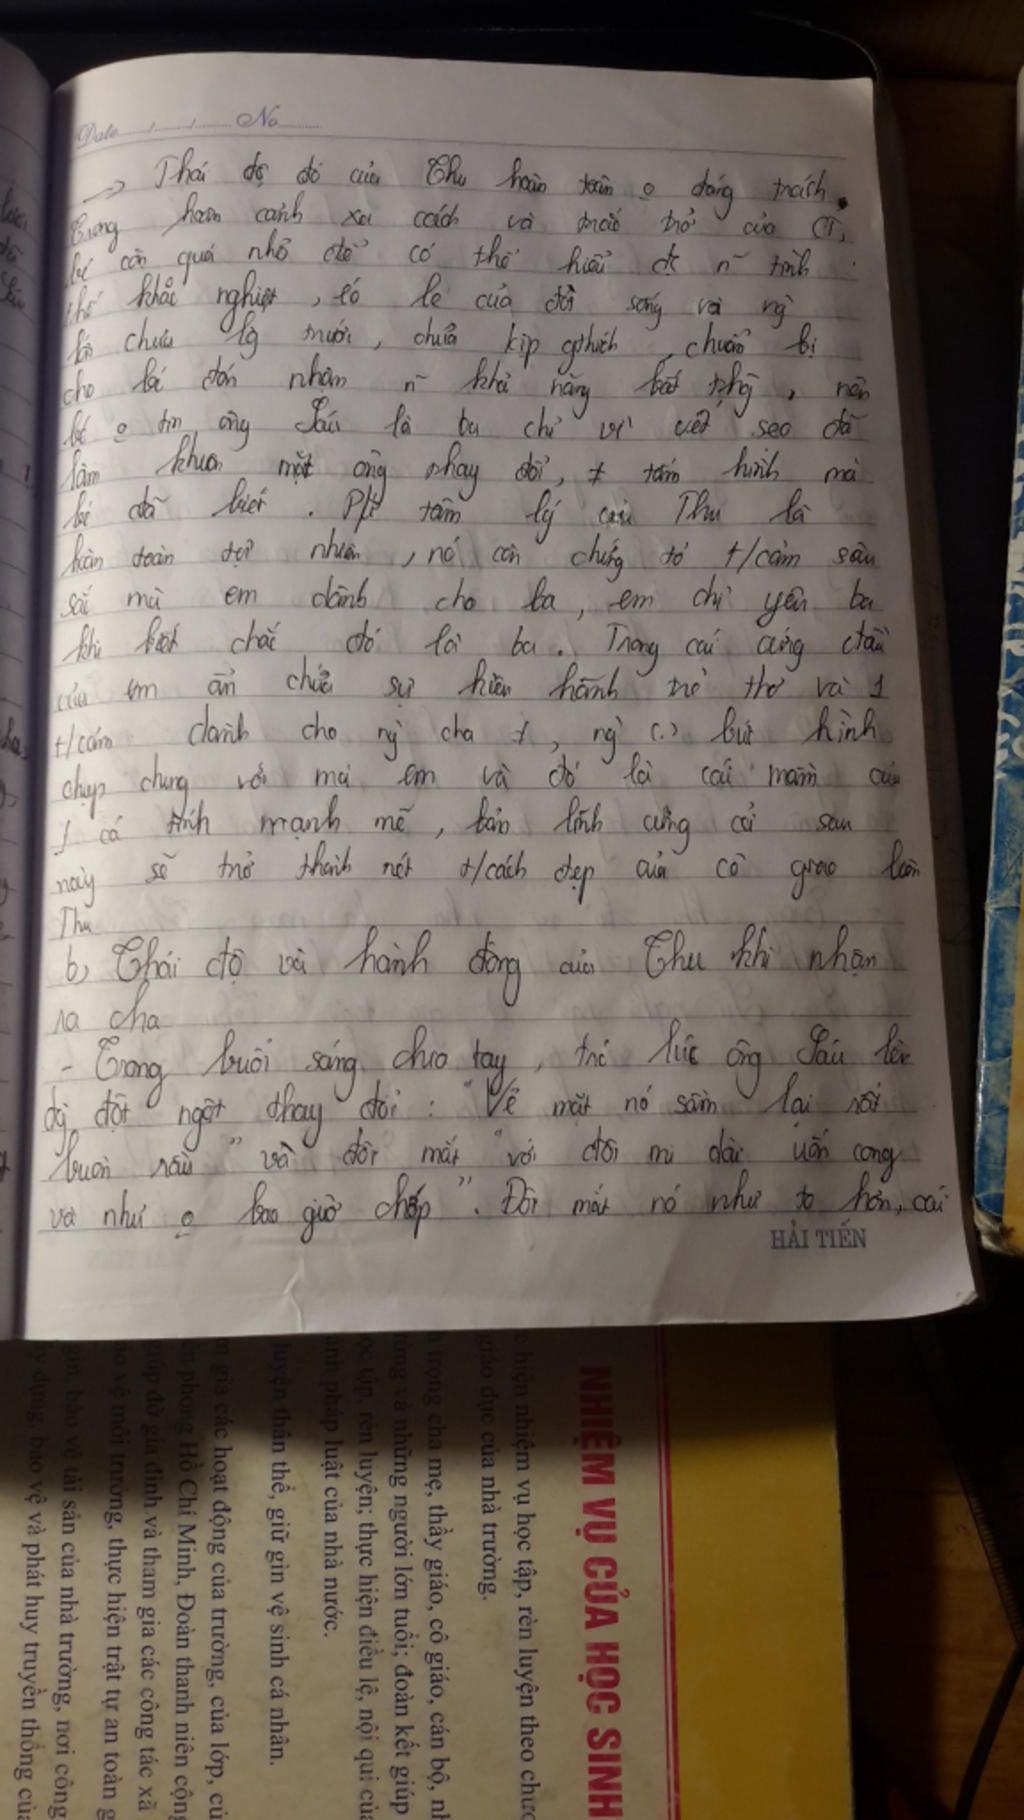 Date / / No
-> Thái độ đó của Thu hoàn toàn o đáng trách.
Trong hoàn cảnh xa cách và trắc trở của CT,
bé còn quá nhỏ để có thể hiểu đc n~ tình
thế khắc nghiệt, éo le của đời sống và ng`
lớn chưa mười, chưa kịp gthích, chuẩn bị
cho bé đón nhận n~ khả năng bất thg`, nên
bé o tin ông Sáu là ba chỉ vì vết sẹo đã
làm khuôn mặt ông thay đổi, ≠ tấm hình mà
bé đã biết. tâm lý của Thu là
hoàn toàn tự nhiên, nó còn chứng tỏ t/cảm sâu
sắc mà em dành cho ba, em chỉ yêu ba
khi biết chắc đó là ba. Trong cái cứng đầu
của em ẩn chứa sự kiêu hãnh trẻ thơ và 1
t/cảm dành cho ng` cha ≠, ng` (.) bức hình
chụp chung với má em và đó là cái mầm của
1 cá tính mạnh mẽ, bản lĩnh cứng cỏi sau
này sẽ trở thành nét t/cách đẹp của cô giao liên
Thu
b, Thái độ và hành động của Thu khi nhận
ra cha
- Trong buổi sáng chia tay, trc lúc ông Sáu lên
đg đột ngột thay đổi: "Vẻ mặt nó sầm lại rất
buồn rầu" và đôi mắt "với đôi mi dài uốn cong
và như o bao giờ chớp". Đôi mắt nó như to hơn, cái
HẢI TIẾN
NHIỆM VỤ CỦA HỌC SINH
c hiện nhiệm vụ học tập, rèn luyện theo chươ
giáo dục của nhà trường.
h trọng cha mẹ, thầy giáo, cô giáo, cán bộ, nh
ường và những người lớn tuổi; đoàn kết giúp
ọc tập, rèn luyện; thực hiện điều lệ, nội qui củ
ành pháp luật của nhà nước.
luyện thân thể, giữ gìn vệ sinh cá nhân.
n gia các hoạt động của trường, của lớp, củ
ên phong Hồ Chí Minh, Đoàn thanh niên cộn
giúp đỡ gia đình và tham gia các công tác xã
ảo vệ môi trường, thực hiện trật tự an toàn g
gìn, bảo vệ tài sản của nhà trường, nơi công
ây dựng, bảo vệ và phát huy truyền thống củ